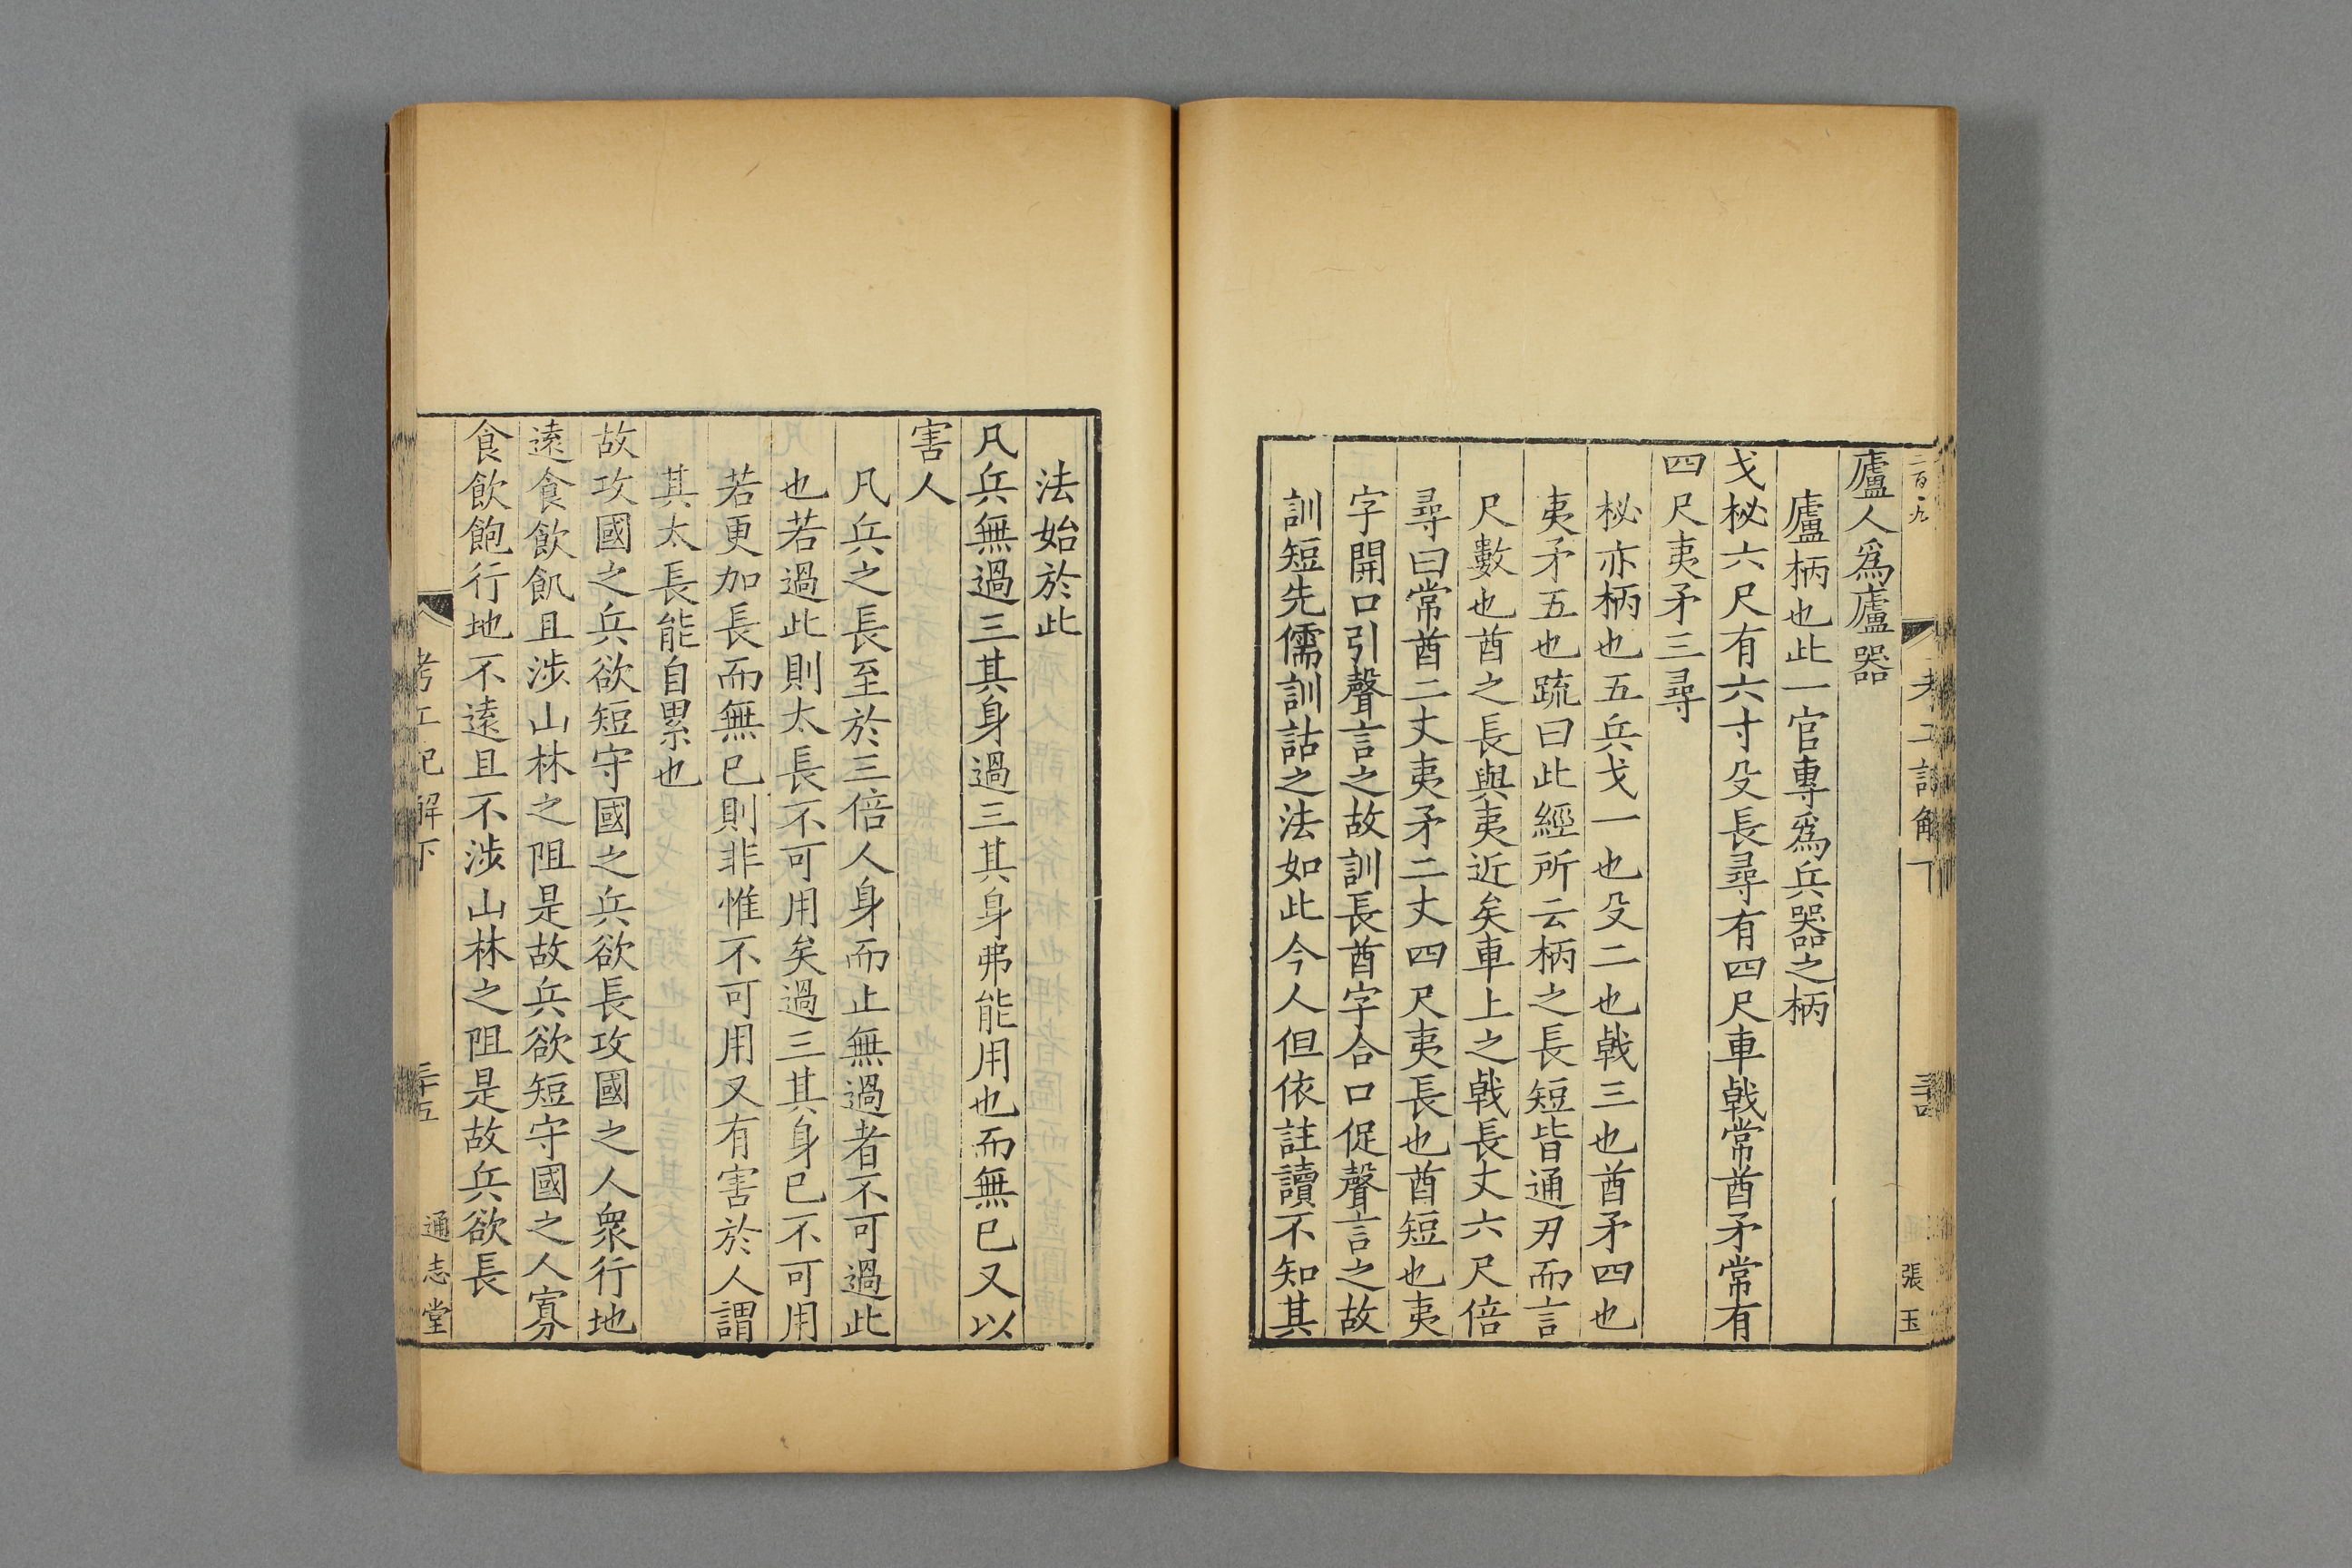 二百一九
考工記解下
張玉
廬人爲廬器
廬柄也此一官專爲兵器之柄
戈柲六尺有六寸殳長尋有四尺車戟常酋矛常有
四尺夷矛三尋
柲亦柄也五兵戈一也殳二也戟三也酋矛四也
夷矛五也疏曰此經所云柄之長短皆通刃而言
尺數也酋之長與夷近矣車上之戟長丈六尺倍
尋曰常酋二丈夷矛二丈四尺夷長也酋短也夷
字開口引聲言之故訓長酋字合口促聲言之故
訓短先儒訓詁之法如此今人但依註讀不知其
法始於此
凡兵無過三其身過三其身弗能用也而無已又以
害人
凡兵之長至於三倍人身而止無過者不可過此
也若過此則太長不可用矣過三其身已不可用
若更加長而無已則非惟不可用又有害於人謂
其太長能自累也
故攻國之兵欲短守國之兵欲長攻國之人衆行地
遠食飲飢且涉山林之阻是故兵欲短守國之人寡
食飲飽行地不遠且不涉山林之阻是故兵欲長
考工記解下
三十五
通志堂